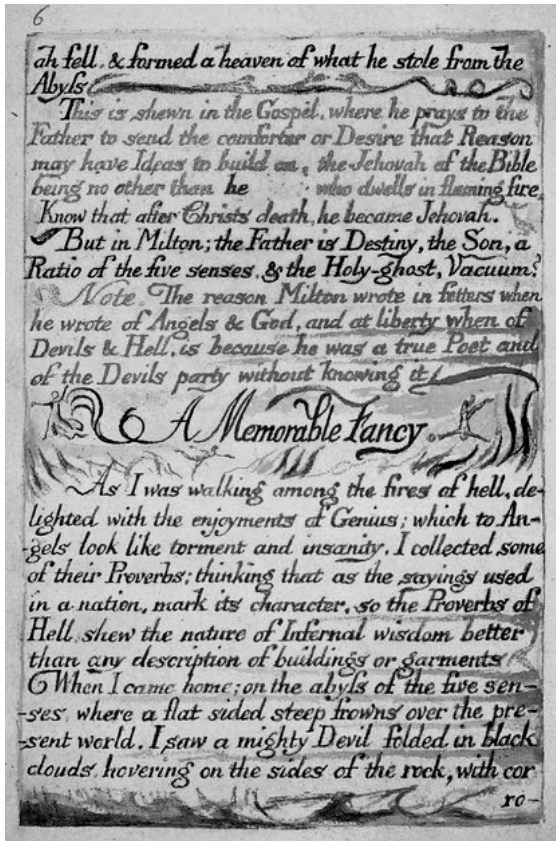 6
ah fell. & formed a heaven of what he stole from the
Abyſs
This is shewn in the Gospel, where he prays to the
Father to send the comforter or Desire that Reason
may have Ideas to build on, the Jehovah of the Bible
being no other than he who dwells in flaming fire
Know that after Christs death, he became Jehovah.
But in Milton; the Father is Destiny, the Son, a
Ratio of the five senses, & the Holy-ghost, Vacuum!
Note. The reason Milton wrote in fetters when
he wrote of Angels & God, and at liberty when of
Devils & Hell, is because he was a true Poet and
of the Devils party without knowing it
A Memorable Fancy.
As I was walking among the fires of hell, de-
lighted with the enjoyments of Genius; which to An-
-gels look like torment and insanity, I collected some
of their Proverbs; thinking that as the sayings used
in a nation, mark its character, so the Proverbs of
Hell, shew the nature of Infernal wisdom better
than any description of buildings or garments
When I came home; on the abyſs of the five sen-
-ses, where a flat sided steep frowns over the pre-
-sent world, I saw a mighty Devil folded in black
clouds, hovering on the sides of the rock, with cor
ro-